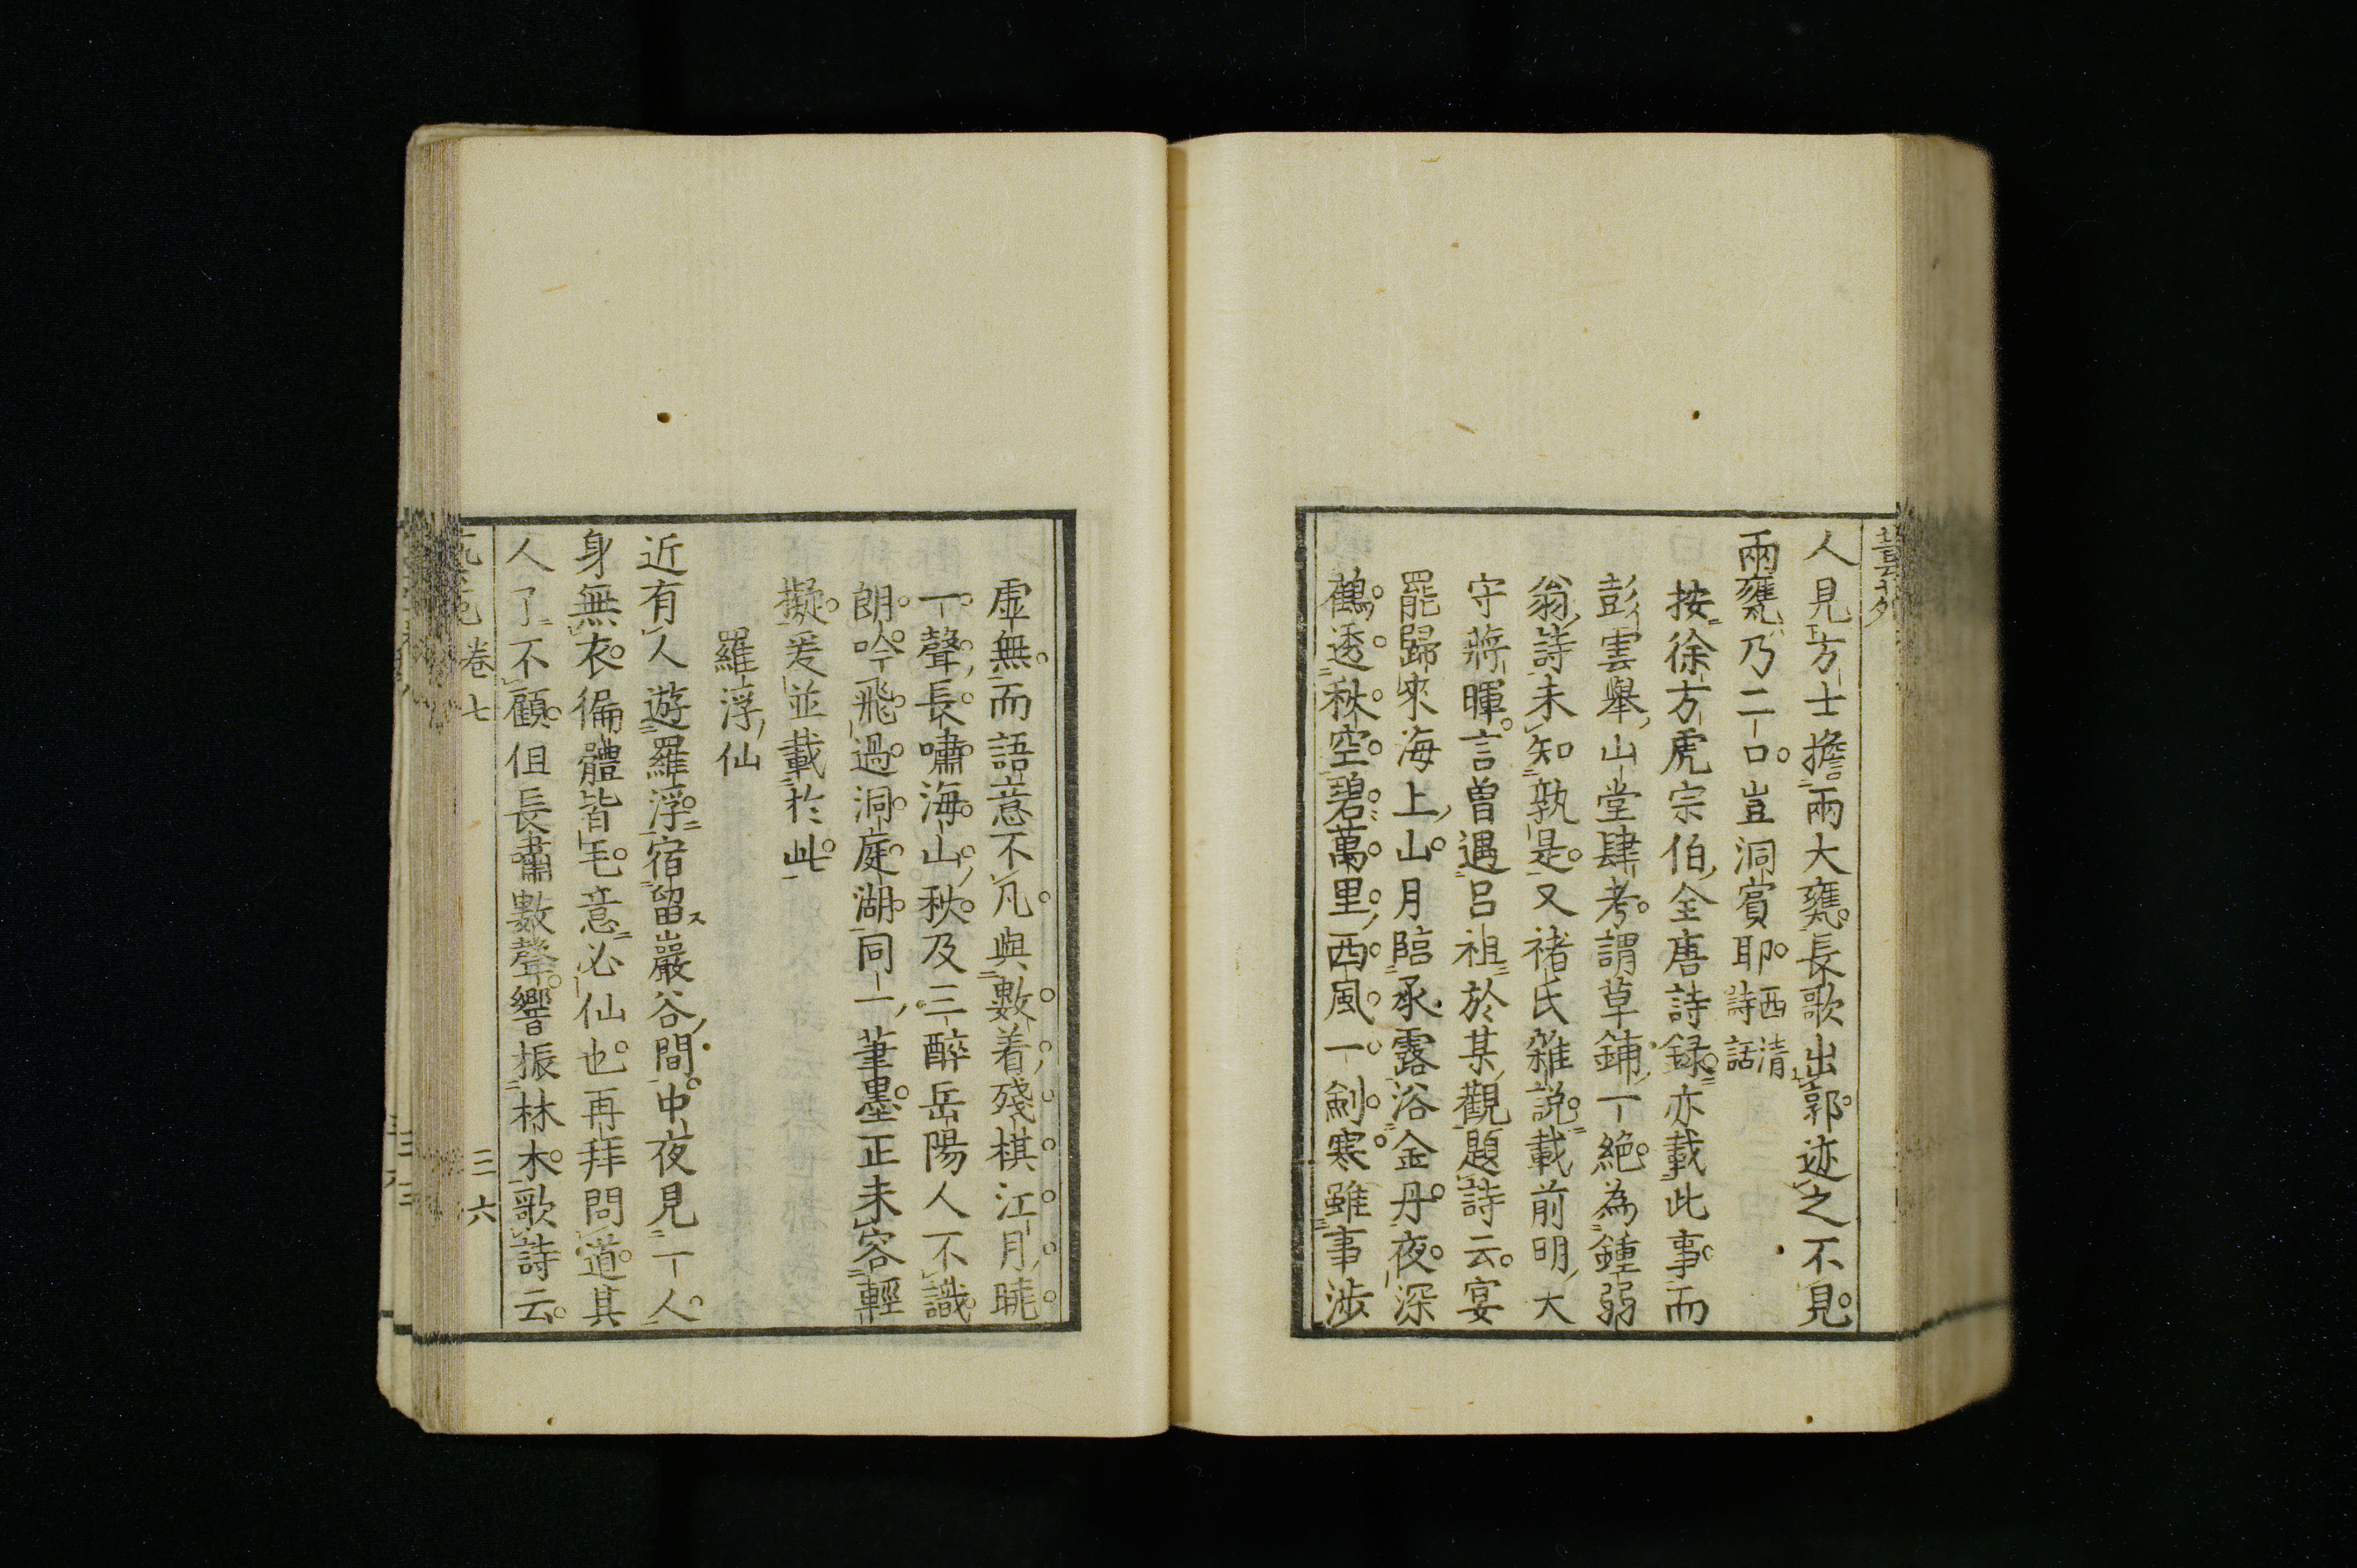 人見方士擔兩大甕。長歌出郭。迹之不見。
兩甕乃二口。豈洞賓耶。西清詩話
按徐方虎宗伯全唐詩録。亦載此事。而
彭雲舉山堂肆考。謂草鋪一絶。為鍾弱
翁詩未知孰是。又褚氏雜説。載前明大
守蔣暉。言曾遇呂祖於某觀題詩云。宴
罷歸來海上山。月臨承露浴金丹。夜深
鶴透秋空碧。萬里西風一劍寒。雖事涉
虛無。而語意不凡。與數着殘棋江月曉。
一聲長嘯海山秋。及三醉岳陽人不識。
朗吟飛過洞庭湖。同一筆墨。正未容輕
擬。爰並載於此。
羅浮仙
近有人遊羅浮。宿留巖谷間。中夜見一人。
身無衣。徧體皆毛。意必仙也。再拜問道。其
人了不顧。但長嘯數聲。響振林木。歌詩云。
卷七
三六